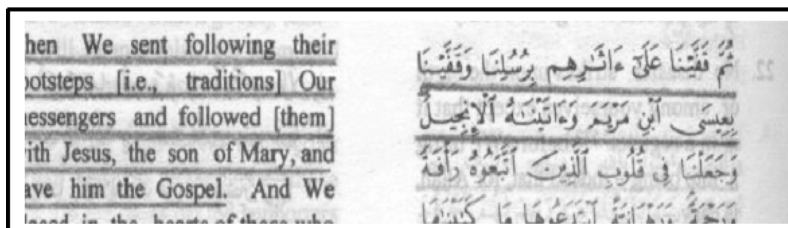 hen We sent following their
ootsteps [i.e., traditions] Our
essengers and followed [them]
ith Jesus, the son of Mary, and
ave him the Gospel. And We
in the hearts of those who
ثُمَّ قَفَّيْنَا عَلَىٰٓ ءَاثَٰرِهِم بِرُسُلِنَا وَقَفَّيْنَا
بِعِيسَى ٱبْنِ مَرْيَمَ وَءَاتَيْنَٰهُ ٱلْإِنجِيلَ
وَجَعَلْنَا فِى قُلُوبِ ٱلَّذِينَ ٱتَّبَعُوهُ رَأْفَةً
وَرَحْمَةً وَرَهْبَانِيَّةً ٱبْتَدَعُوهَا مَا كَتَبْنَٰهَا